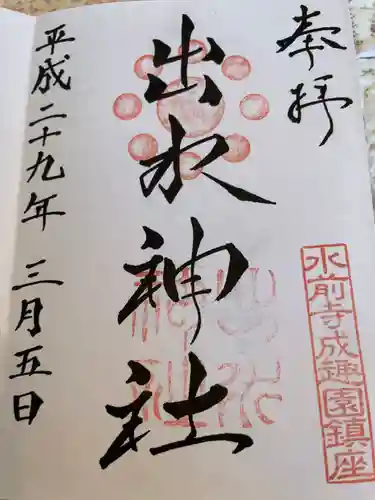 奉拝
水前寺成趣園鎮座
出水神社
平成二十九年 三月五日